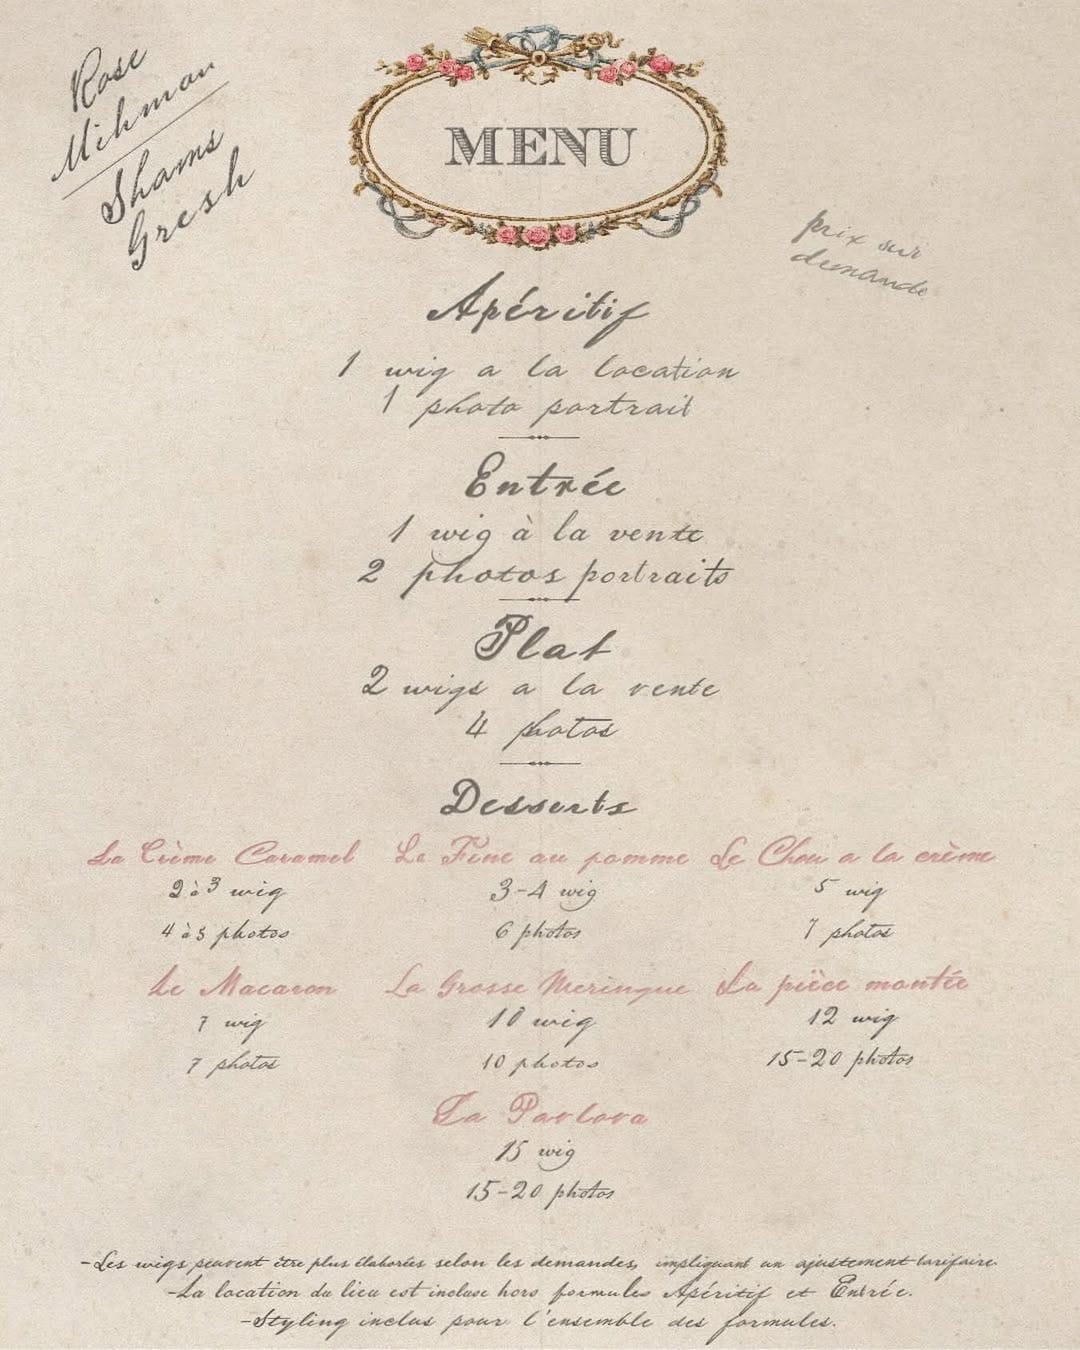 Rose
Mihman
Shams
Gresh
MENU
prix sur
demande
Apéritif
1 wig a la location
1 photo portrait
Entrée
1 wig à la vente
2 photos portraits
Plat
2 wigs a la vente
4 photos
Desserts
La Crème Caramel
2 à 3 wig
4 à 5 photos
La Fine au pomme
3-4 wig
6 photos
Le Chou a la crème
5 wig
7 photos
Le Macaron
7 wig
7 photos
La Grosse Meringue
10 wig
10 photos
La pièce montée
12 wig
15-20 photos
La Pavlova
15 wig
15-20 photos
-Les wigs peuvent être plus élaborées selon les demandes, impliquant un ajustement tarifaire.
-La location du lieu est incluse hors formules Apéritif et Entrée.
-Styling inclus pour l'ensemble des formules.